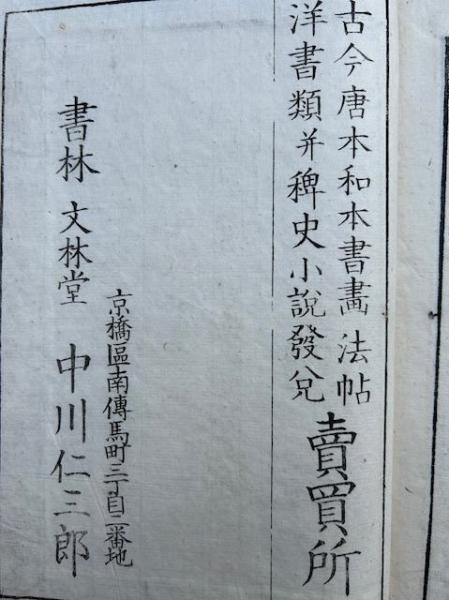 古今唐本和本書畫法帖
洋書類并稗史小說發兌
賣買所
京橋區南傳馬町三丁目二番地
書林 文林堂 中川仁三郎